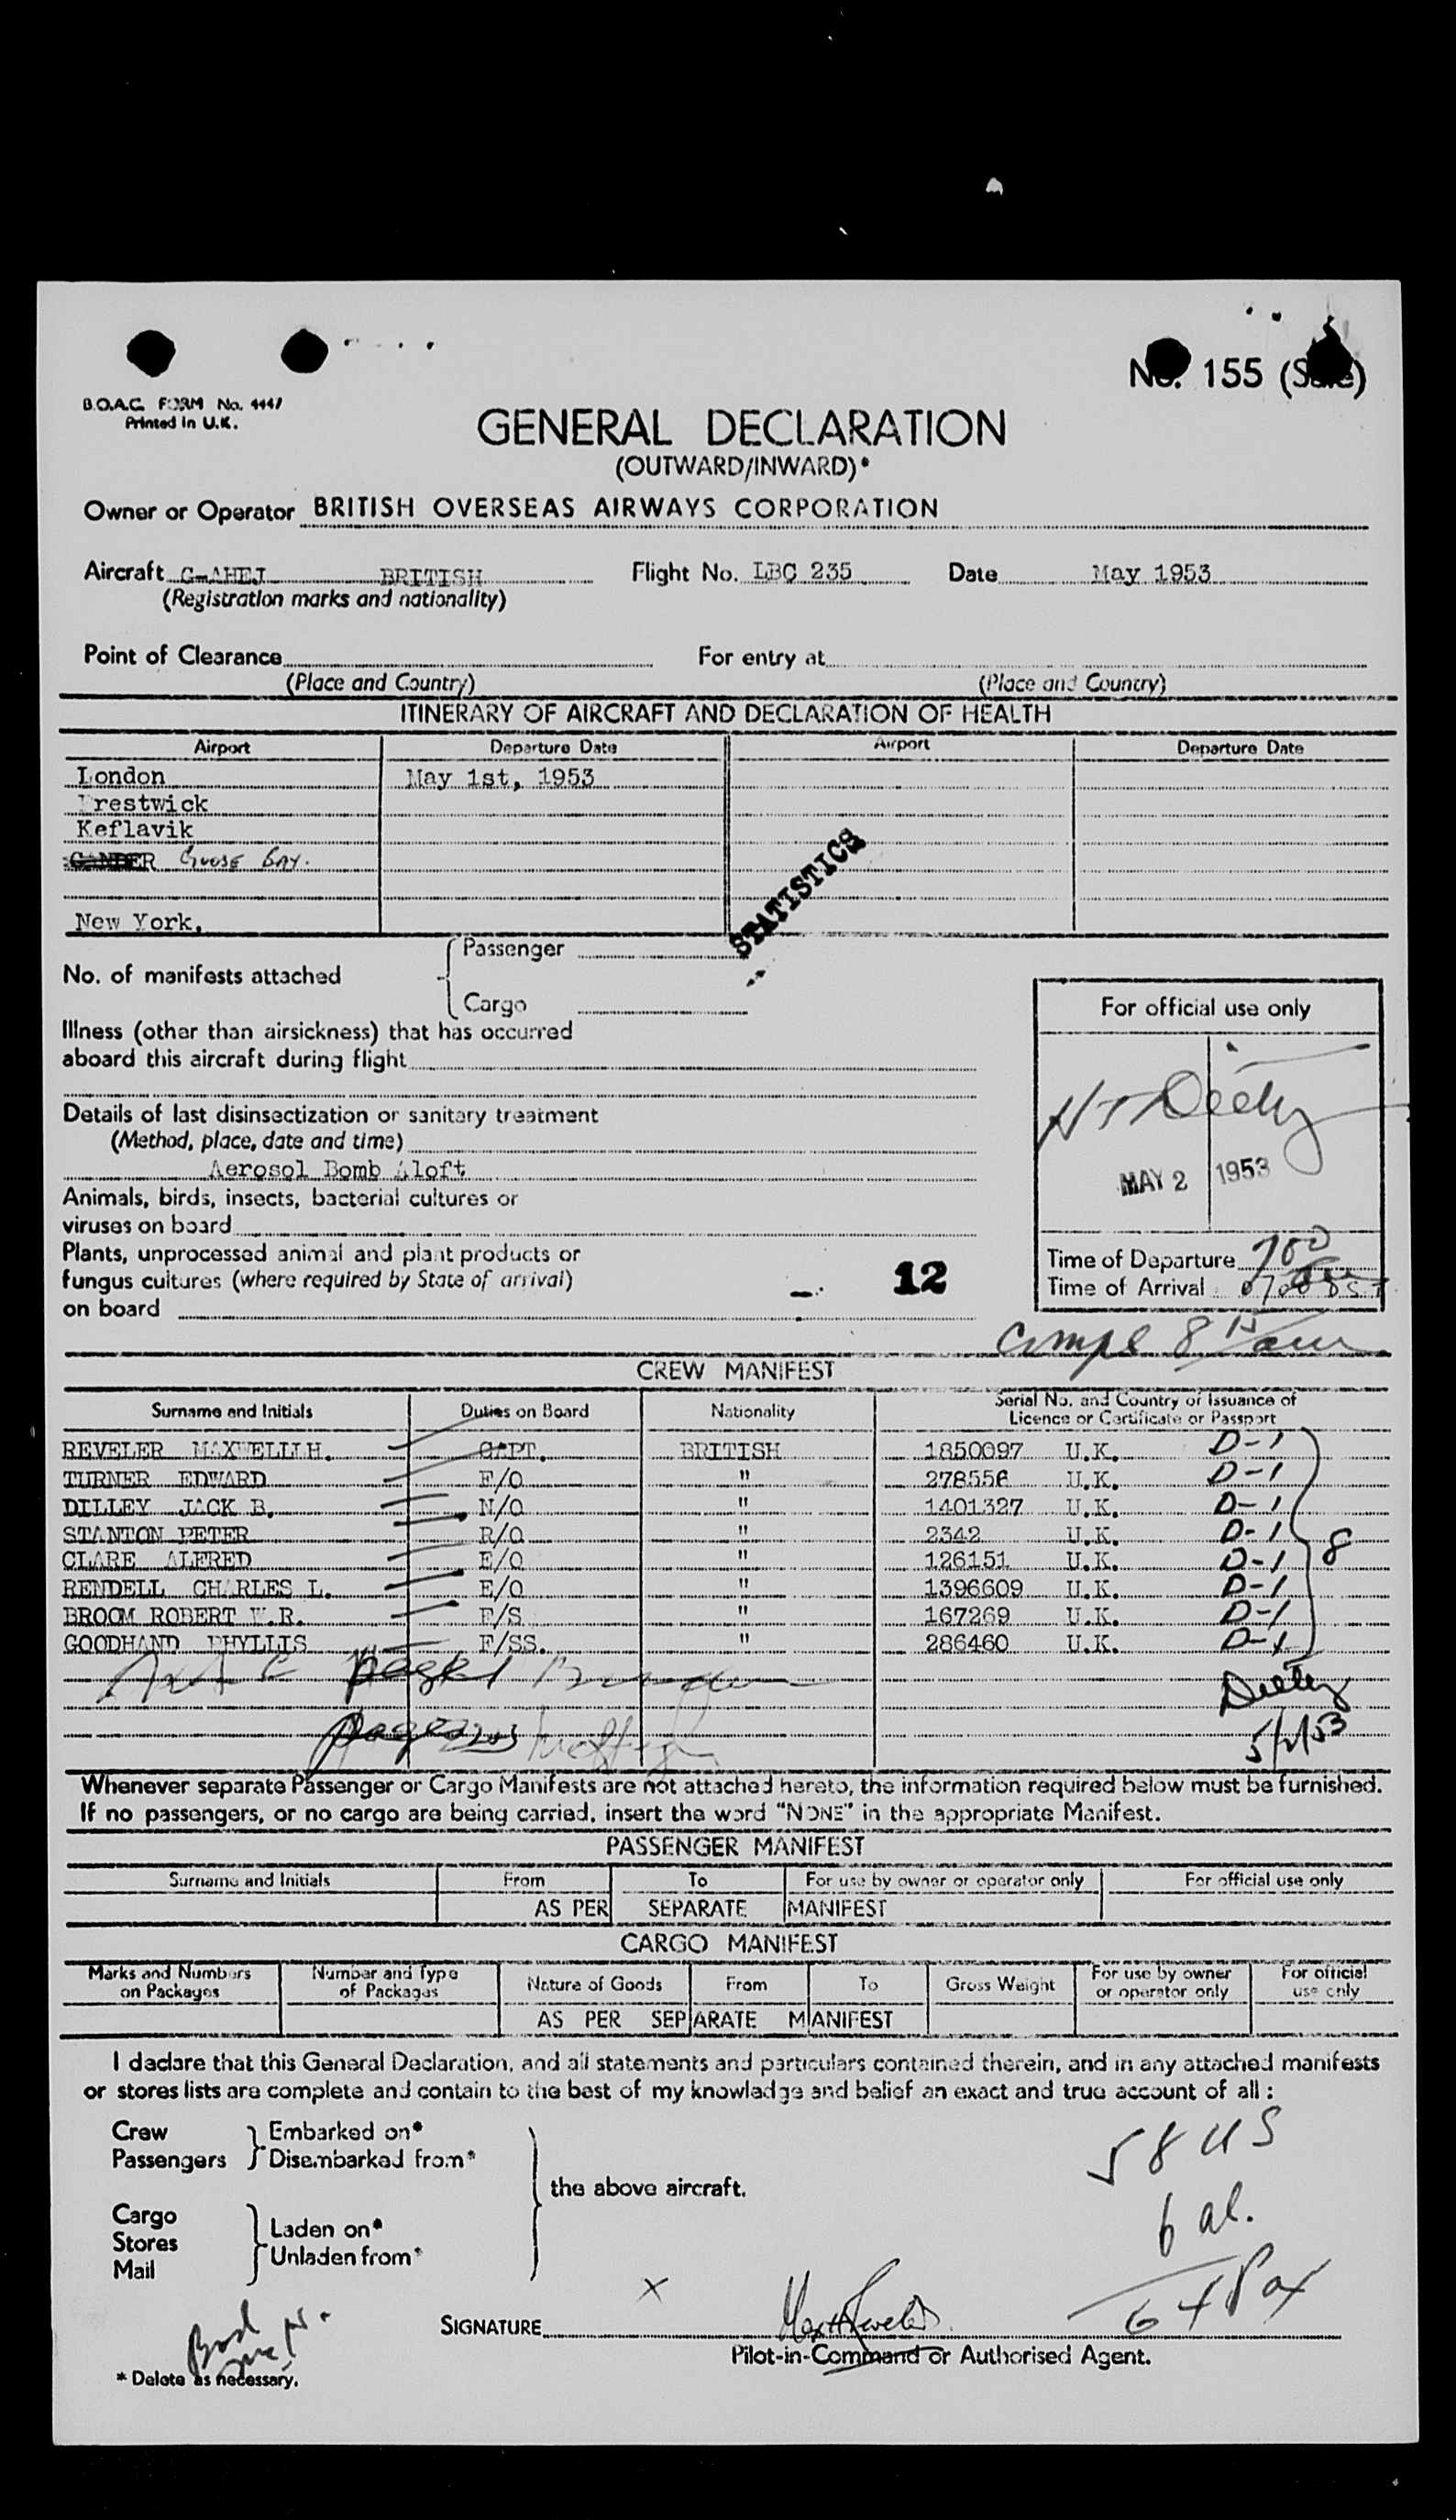 No. 155 (Sale)
B.O.A.C. FORM No. 4447
Printed in U.K.
GENERAL DECLARATION
(OUTWARD/INWARD)*
Owner or Operator BRITISH OVERSEAS AIRWAYS CORPORATION
Aircraft G-AHEJ BRITISH Flight No. LBC 235 Date May 1953
(Registration marks and nationality)
Point of Clearance For entry at
(Place and Country) (Place and Country)
ITINERARY OF AIRCRAFT AND DECLARATION OF HEALTH
Airport Departure Date Airport Departure Date
London May 1st, 1953
Prestwick
Keflavik
GANDER Goose Bay.
New York,
STATISTICS
Passenger
No. of manifests attached
Cargo
For official use only
Illness (other than airsickness) that has occurred
aboard this aircraft during flight
Details of last disinsectization or sanitary treatment
(Method, place, date and time)
Aerosol Bomb Aloft
MAY 2 1953
Animals, birds, insects, bacterial cultures or
viruses on board
Plants, unprocessed animal and plant products or
fungus cultures (where required by State of arrival)
on board
12
Time of Departure 700
Time of Arrival 0700 DST
CREW MANIFEST
Surname and Initials Duties on Board Nationality Serial No. and Country of Issuance of
Licence or Certificate or Passport
REVELER MAXWELLLH. CAPT. BRITISH 1850097 U.K. D-1
TURNER EDWARD F/O " 278556 U.K. D-1
DILLEY JACK B. N/O " 1401327 U.K. D-1
STANTON PETER R/O " 2342 U.K. D-1
CLARE ALFRED E/O " 126151 U.K. D-1 8
RENDELL CHARLES L. E/O " 1396609 U.K. D-1
BROOM ROBERT W.R. F/S " 167269 U.K. D-1
GOODHAND PHYLLIS F/SS. " 286460 U.K. D-1
5/2/53
Whenever separate Passenger or Cargo Manifests are not attached hereto, the information required below must be furnished.
If no passengers, or no cargo are being carried, insert the word "NONE" in the appropriate Manifest.
PASSENGER MANIFEST
Surname and Initials From To For use by owner or operator only For official use only
AS PER SEPARATE MANIFEST
CARGO MANIFEST
Marks and Numbers on Packages Number and Type of Packages Nature of Goods From To Gross Weight For use by owner or operator only For official use only
AS PER SEPARATE MANIFEST
I declare that this General Declaration, and all statements and particulars contained therein, and in any attached manifests
or stores lists are complete and contain to the best of my knowledge and belief an exact and true account of all :
Crew Embarked on*
Passengers Disembarked from*
the above aircraft.
Cargo
Stores Laden on*
Mail Unladen from*
58 US
6 al.
64 Pax
X
SIGNATURE
Pilot-in-Command or Authorised Agent.
* Delete as necessary.